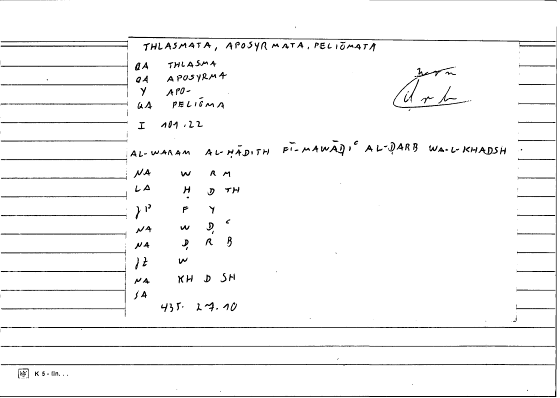 THLASMATA, APOSYRMATA, PELIŌMATA
QA THLASMA
QA APOSYRMA
Y APO-
QA PELIŌMA
I 101.22
AL-WARAM AL-ḤĀDITH FĪ-MAWĀḌIʿ AL-ḌARB WA-L-KHADSH
NA W R M
LA Ḥ D TH
JP F Y
NA W Ḍ ʿ
NA Ḍ R B
JZ W
NA KH D SH
SA
435. 27.10
K 5 - lin. . .